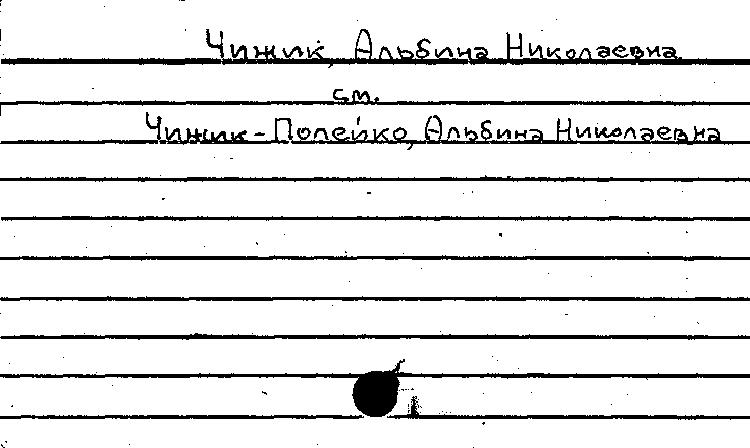 Чижик, Альбина Николаевна
см.
Чижик-Полейко, Альбина Николаевна